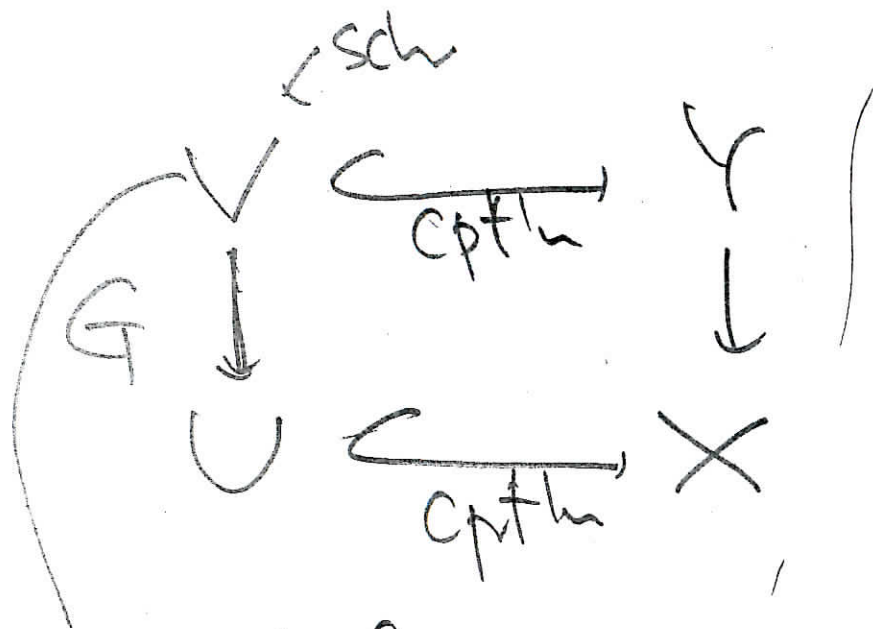 sch
V Y
cpt'n
G
U X
cpt'n